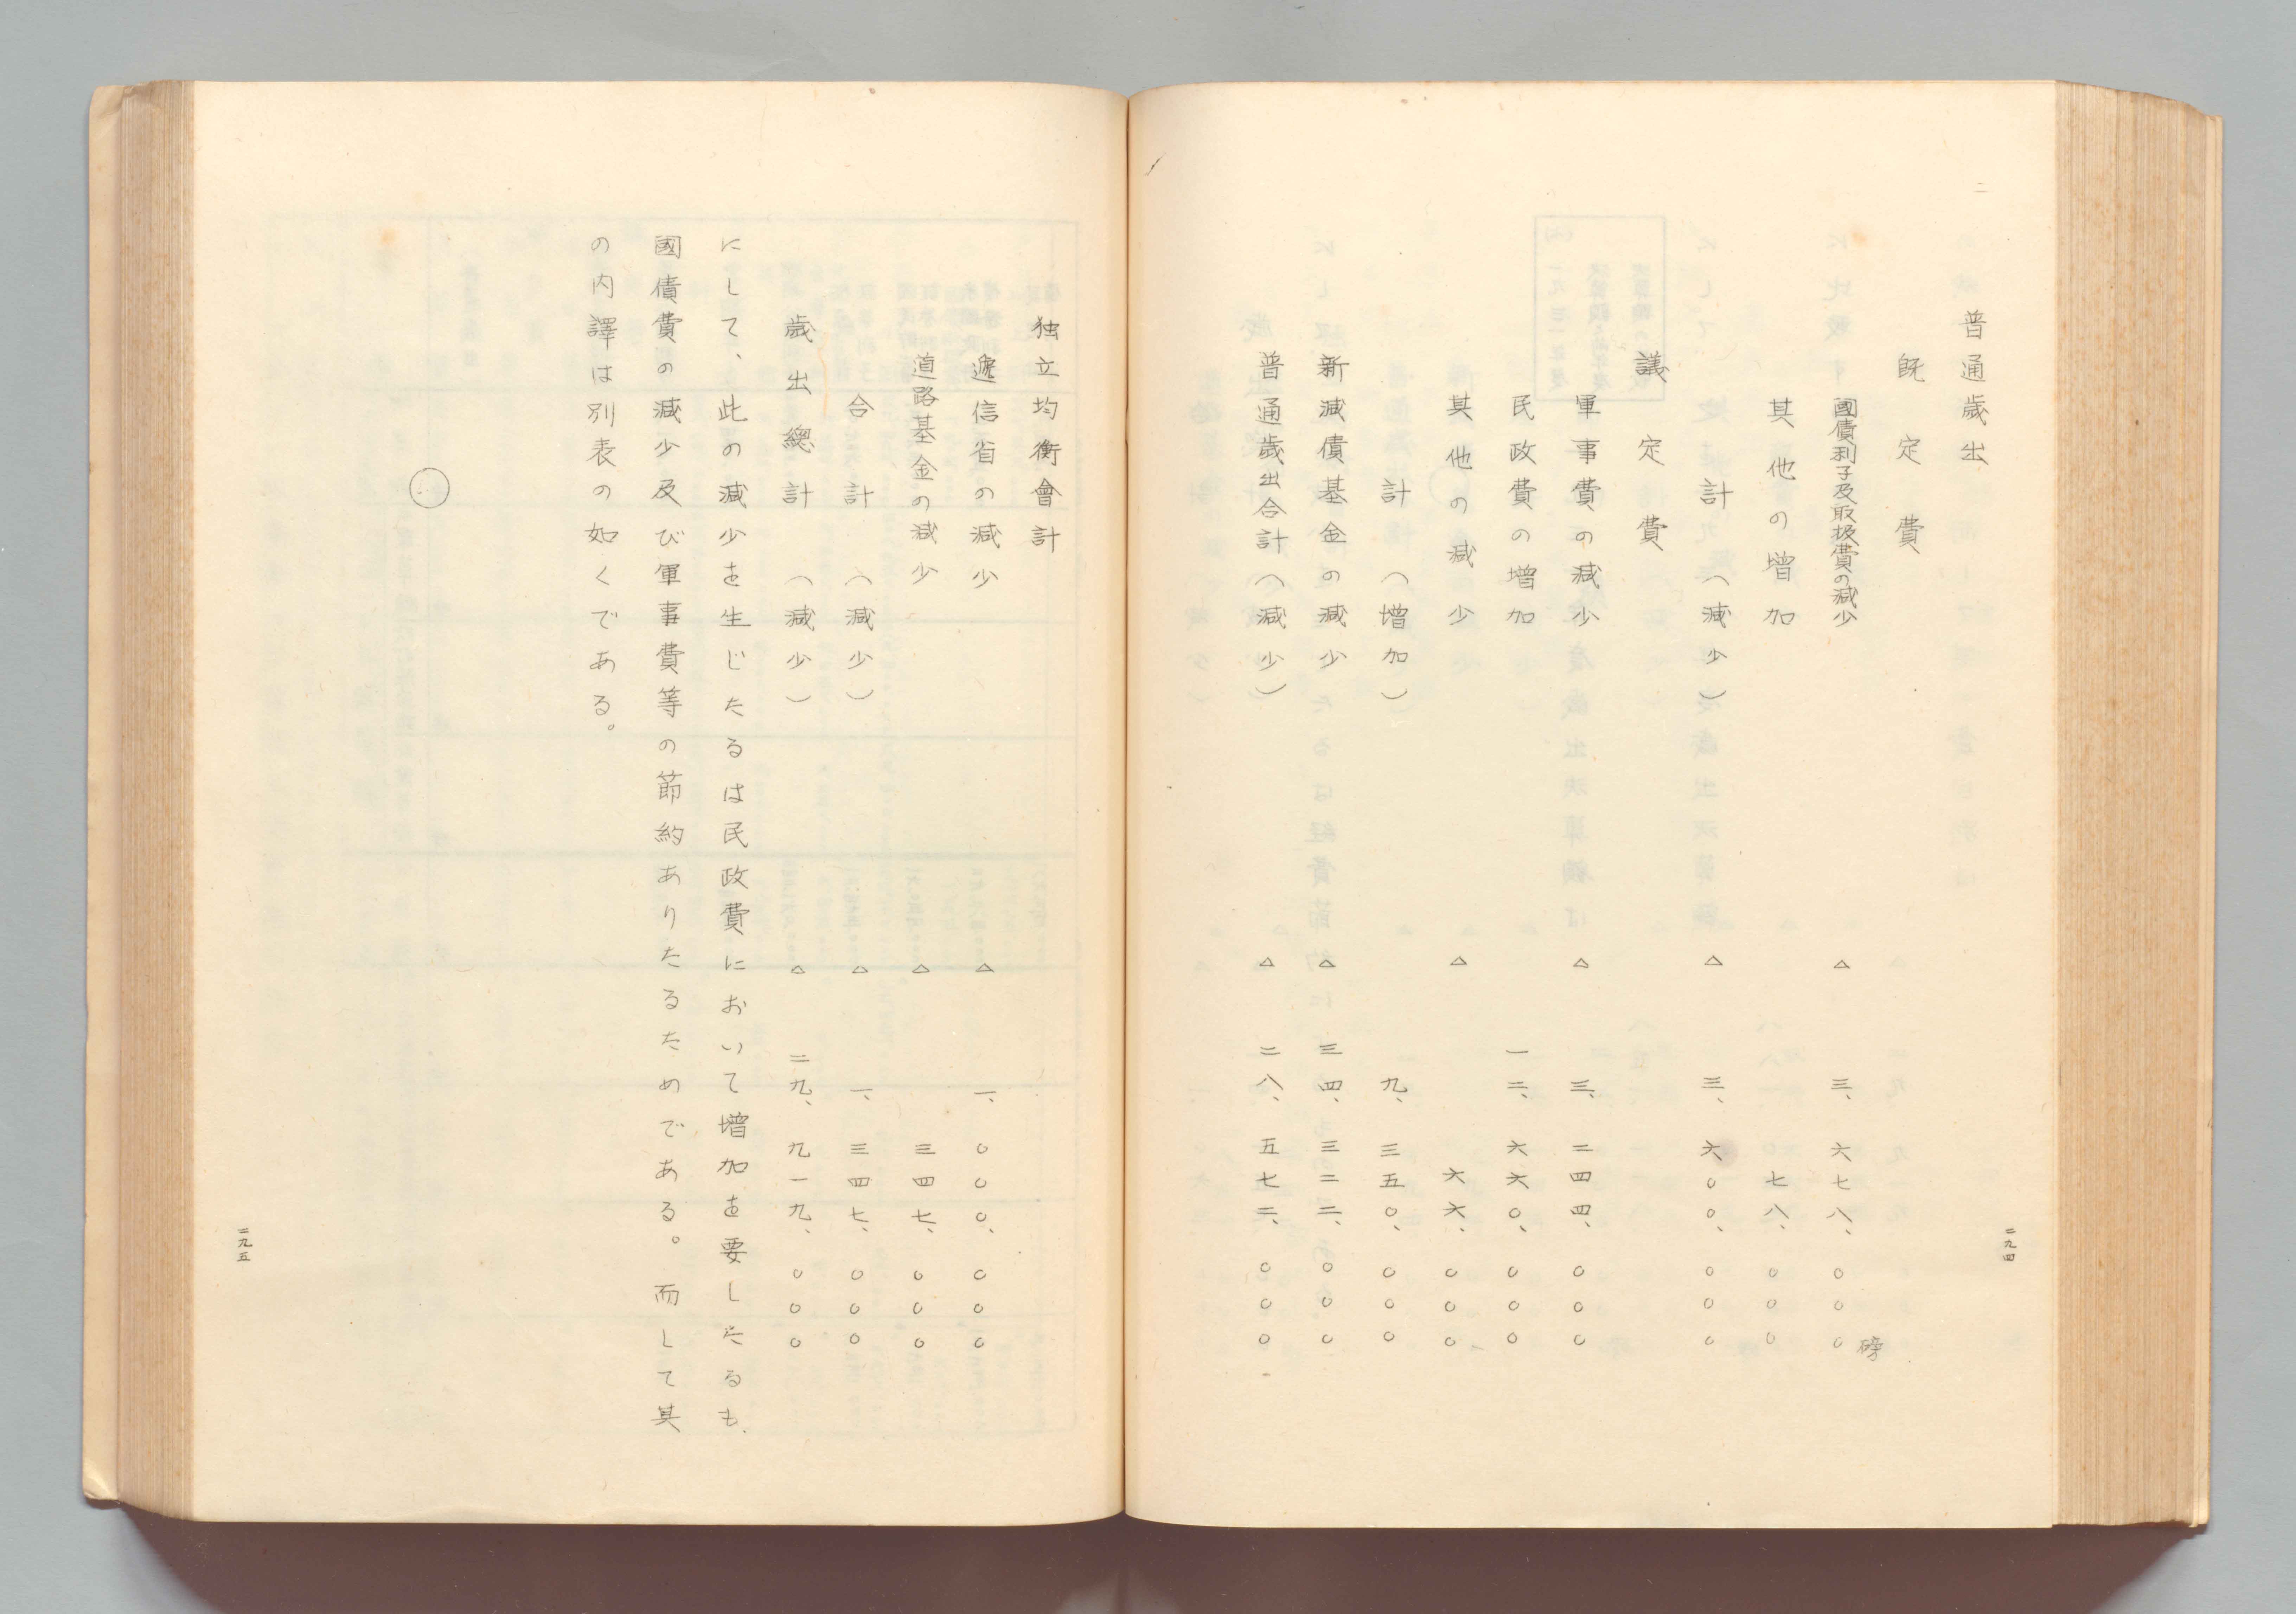 普通歳出
既定費
國債利子及取扱費の減少 △ 三、六七八、〇〇〇磅
其他の増加 七八、〇〇〇
計（減少） △ 三、六〇〇、〇〇〇
議定費
軍事費の減少 △ 三、二四四、〇〇〇
民政費の増加 一二、六六〇、〇〇〇
其他の減少 △ 六六、〇〇〇
計（増加） 九、三五〇、〇〇〇
新減債基金の減少 △ 三四、三二二、〇〇〇
普通歳出合計（減少） △ 二八、五七二、〇〇〇
二九四
独立均衡會計
遞信省の減少 △ 一、〇〇〇、〇〇〇
道路基金の減少 △ 三四七、〇〇〇
合計（減少） △ 一、三四七、〇〇〇
歳出總計（減少） △ 二九、九一九、〇〇〇
にして、此の減少を生じたるは民政費において増加を要したるも
國債費の減少及び軍事費等の節約ありたるためである。而して其
の内譯は別表の如くである。
二九五